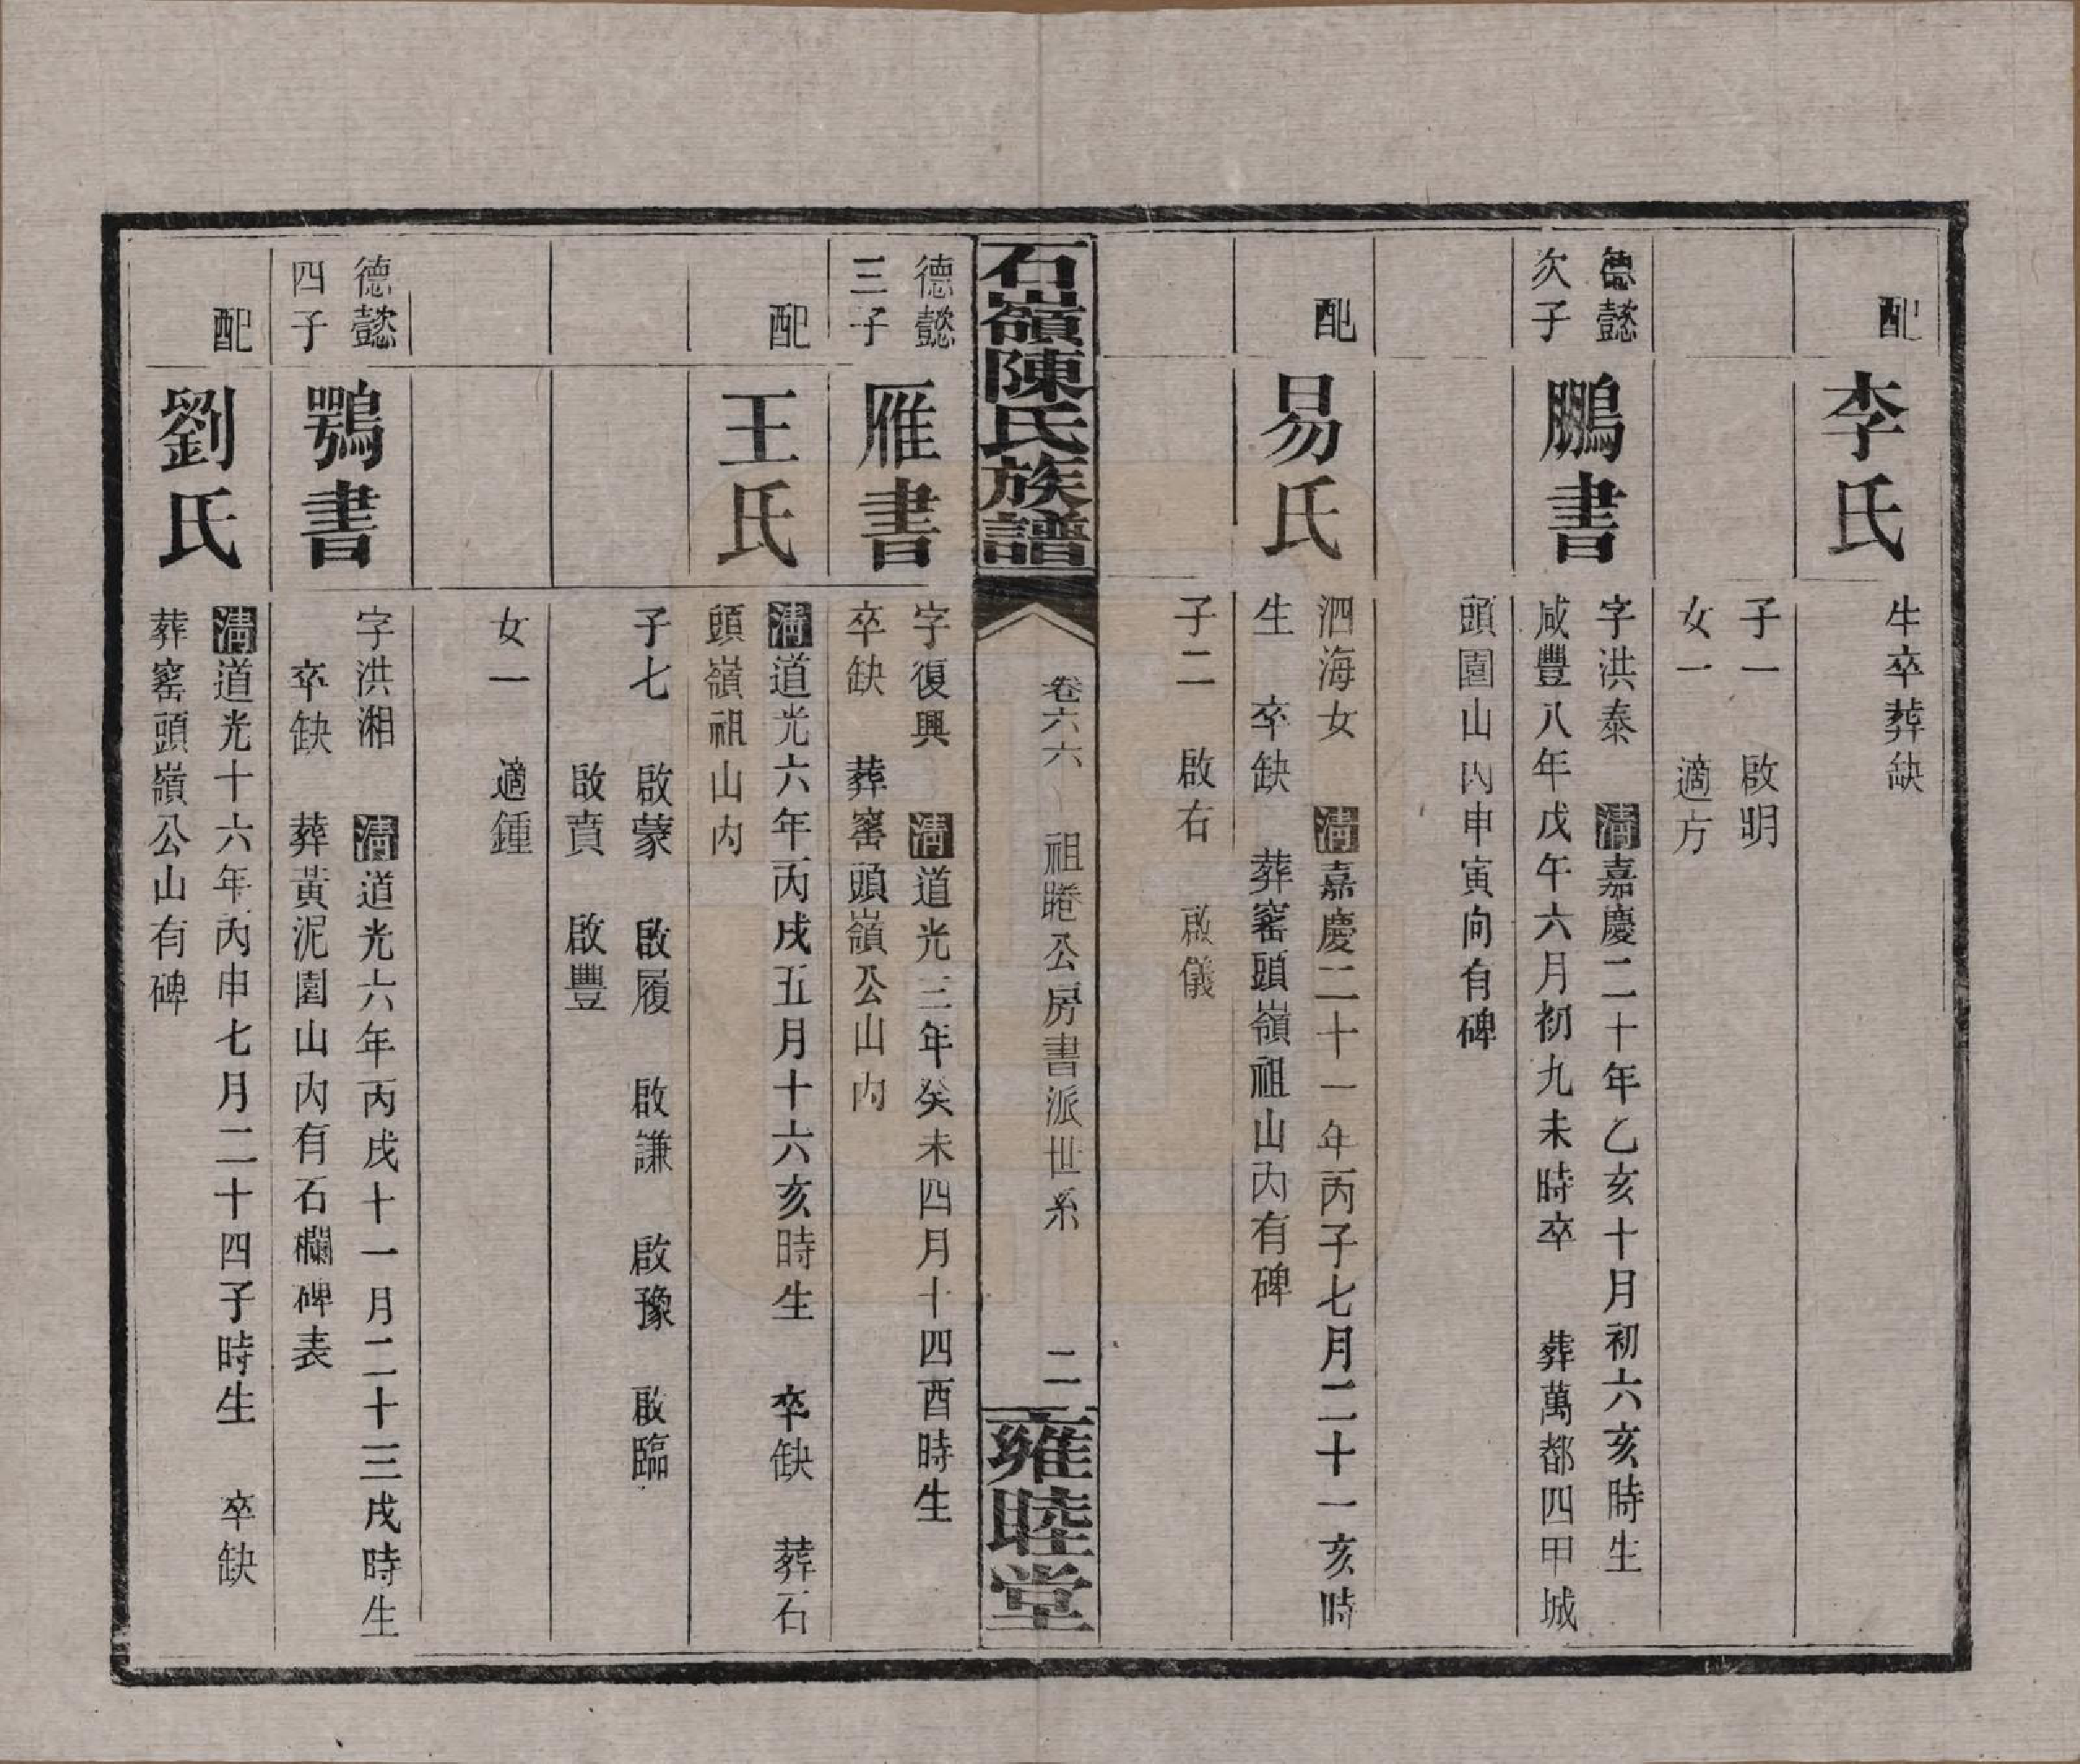 配
李氏
生卒葬缺
子一　啟明
女一　適方
德懿
次子
鵬書
字洪泰　清嘉慶二十年乙亥十月初六亥時生
咸豐八年戊午六月初九未時卒　葬萬都四甲城
頭園山內申寅向有碑
配
易氏
泗海女　清嘉慶二十一年丙子七月二十一亥時
生　卒缺　葬窰頭嶺祖山內有碑
子二　啟右　啟儀
石嶺陳氏族譜
卷六六　祖睠公房書派世系　二
雍睦堂
德懿
三子
雁書
字復興　清道光三年癸未四月十四酉時生
卒缺　葬窰頭嶺公山內
配
王氏
清道光六年丙戌五月十六亥時生　卒缺　葬石
頭嶺祖山內
子七　啟蒙　啟履　啟謙　啟豫　啟臨
啟賁　啟豐
女一　適鍾
德懿
四子
鶚書
字洪湘　清道光六年丙戌十一月二十三戌時生
卒缺　葬黃泥園山內有石欄碑表
配
劉氏
清道光十六年丙申七月二十四子時生　卒缺
葬窰頭嶺公山有碑